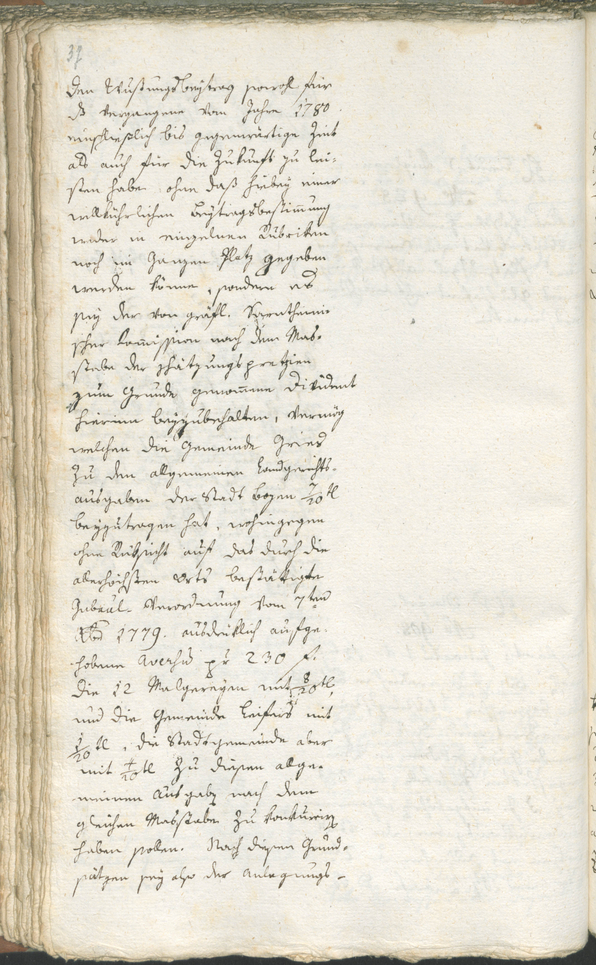 37
den Rustungsbeytrag sowohl für
das vergangene vom Jahre 1780.
einschließlich bis gegenwärtige Zeit
als auch für die Zukunft zu lei-
sten habe, ohne daß hiebey einer
willkührlichen Beytragsbestimmung
weder in einzelnen Rubriken
noch im Ganzen Platz gegeben
werden könne, sondern es
sey der von gräfl. Sarntheini-
scher Commission nach dem Mas-
stabe der Schätzungspretzien
zum Grunde genommene Divident
hierinn beyzubehalten, vermög
welchen die Gemeinde Gries
zu den allgemeinen Landgerichts-
ausgaben der Stadt Bozen 7/20tl
beyzutragen hat, wohingegen
ohne Rüksicht auf das durch die
allerhöchsten Orts bestättigte
Gubeal. Verordnung vom 7ten
Xber 1779. ausdrücklich aufge-
hobene Aversum pr 230 f.
die 12 Malgereyen mit 8/20tl,
und die Gemeinde Leifers mit
1/20tl, die Stadtgemeinde aber
mit 4/20tl zu diesen allge-
meinen Ausgaben nach dem
gleichen Masstabe zu konkurriren
haben sollen. Nach diesen Grund-
sätzen sey also der Anlegungs-